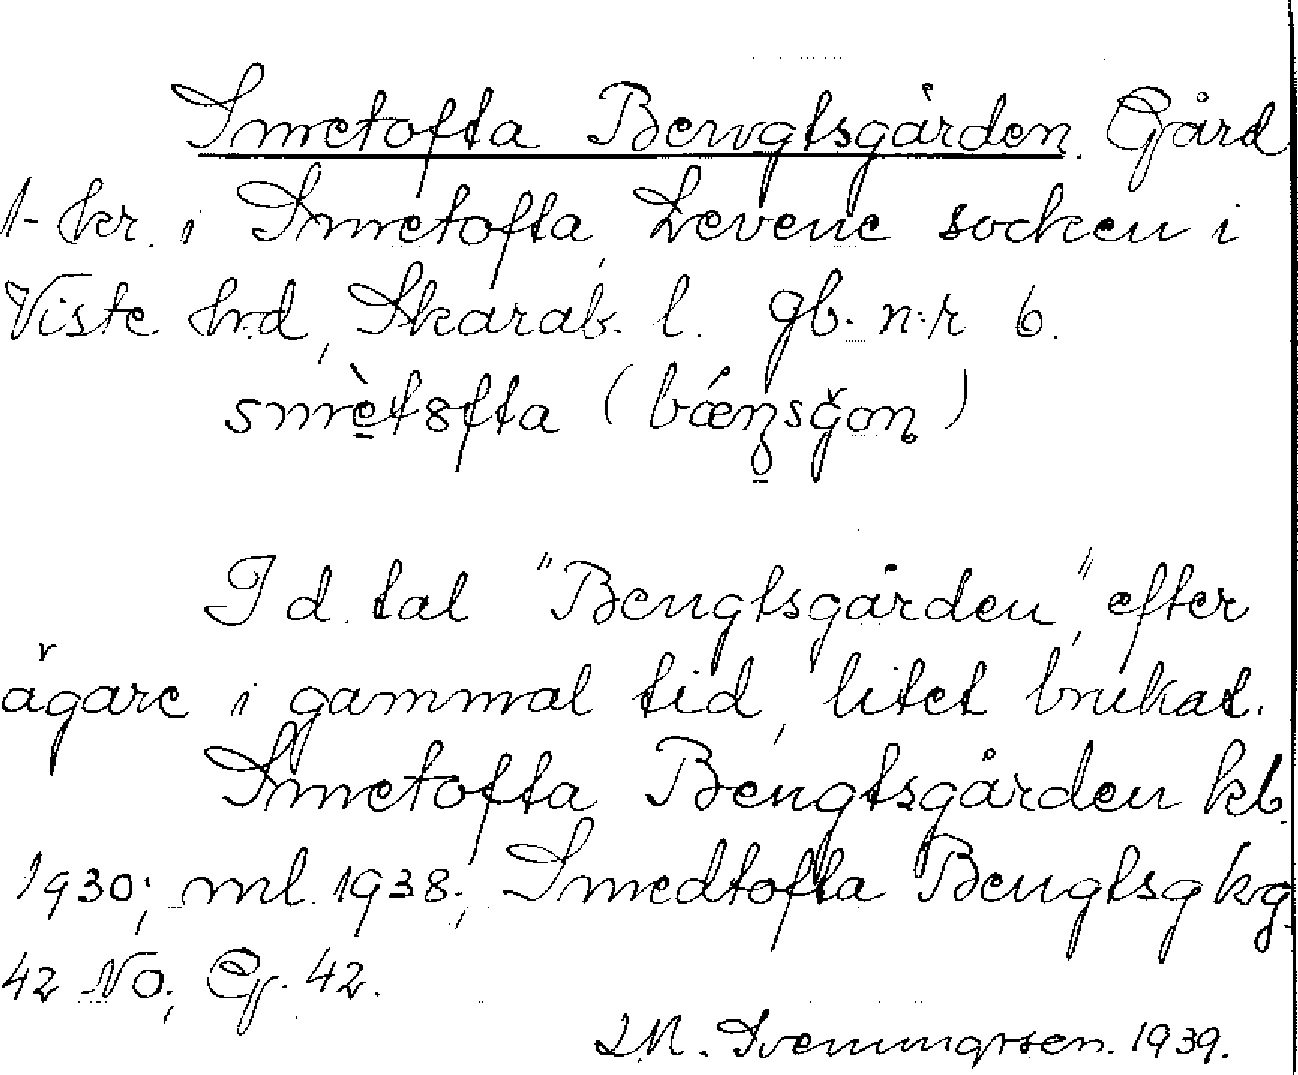 Smetofta Bengtsgården. Gård
1-hr. i Smetofta, Levene socken i
Viste hd, Skarab. l. gb. n:r 6.
smètofta (bǽnsgon)
I d. tal "Bengtsgården", efter
ägare i gammal tid, litet brukat.
Smetofta Bengtsgården kb.
1930; ml. 1938; Smedtofta Bengtsg kg.
42 No; G. 42.
1939.